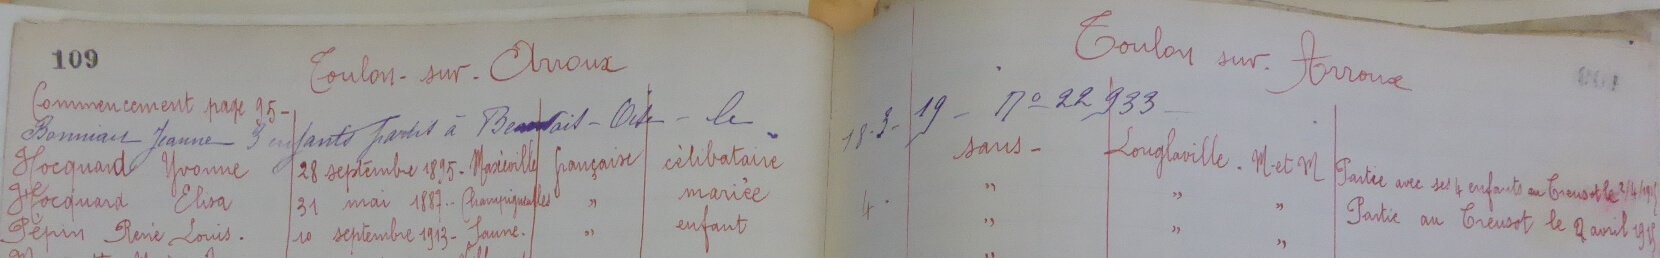 109
Toulon-sur-Arroux
Toulon sur-Arroux
Commencement page 95-
Bonnian Jeanne 3 enfants partis à Beauvais-Oise-le 18-3-19-No 22933-
Hocquard Yvonne 28 septembre 1895. Maxéville française célibataire sans- Longlaville. M-et M
Hocquard Elisa 31 mai 1887.- Champigneulles " mariée 4. " " " Partie avec ses 4 enfants au Creusot le 2/4/1915
Pépin René Louis. 10 septembre 1913- Jaune. " enfant " " " Partie au Creusot le 2 avril 1915